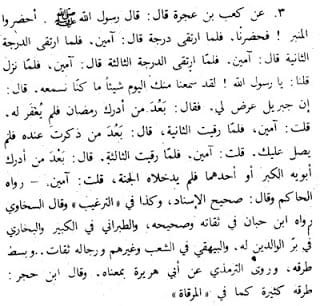 ٣. عن كعب بن عجرة قال: قال رسول الله ﷺ. أحضروا
المنبر ! فحضرنا. فلما ارتقى درجة قال: آمين. فلما ارتقى الدرجة
الثانية قال: آمين. فلمّا ارتقى الدرجة الثالثة قال: آمين. فلمّا نزل
قلنا: يا رسول الله ! لقد سمعنا منك اليوم شيئاً ما كنّا نسمعه. قال:
إن جبريل عرض لي. فقال: بَعُدَ من أدرك رمضان فلم يُغفر له.
قلت: آمين. فلمّا رقيت الثانية، قال: بَعُدَ من ذكرت عنده فلم
يصل عليك. قلت: آمين. فلمّا رقيت الثالثة. قال: بَعُدَ من أدرك
أبويه الكبر أو أحدهما فلم يدخلاه الجنة، قلت: آمين. – رواه
الحاكم وقال: صحيح الإسناد، وكذا في «الترغيب» وقال السخاوي
رواه ابن حبان في ثقاته وصحيحه، والطبراني في الكبير والبخاري
في برّ الوالدين له. والبيهقي في الشعب وغيرهم ورجاله ثقات.. وبسط
طرقه، وروى الترمذي عن أبي هريرة بمعناه. وقال ابن حجر:
طرقه كثيرة كما في «المرقاة»